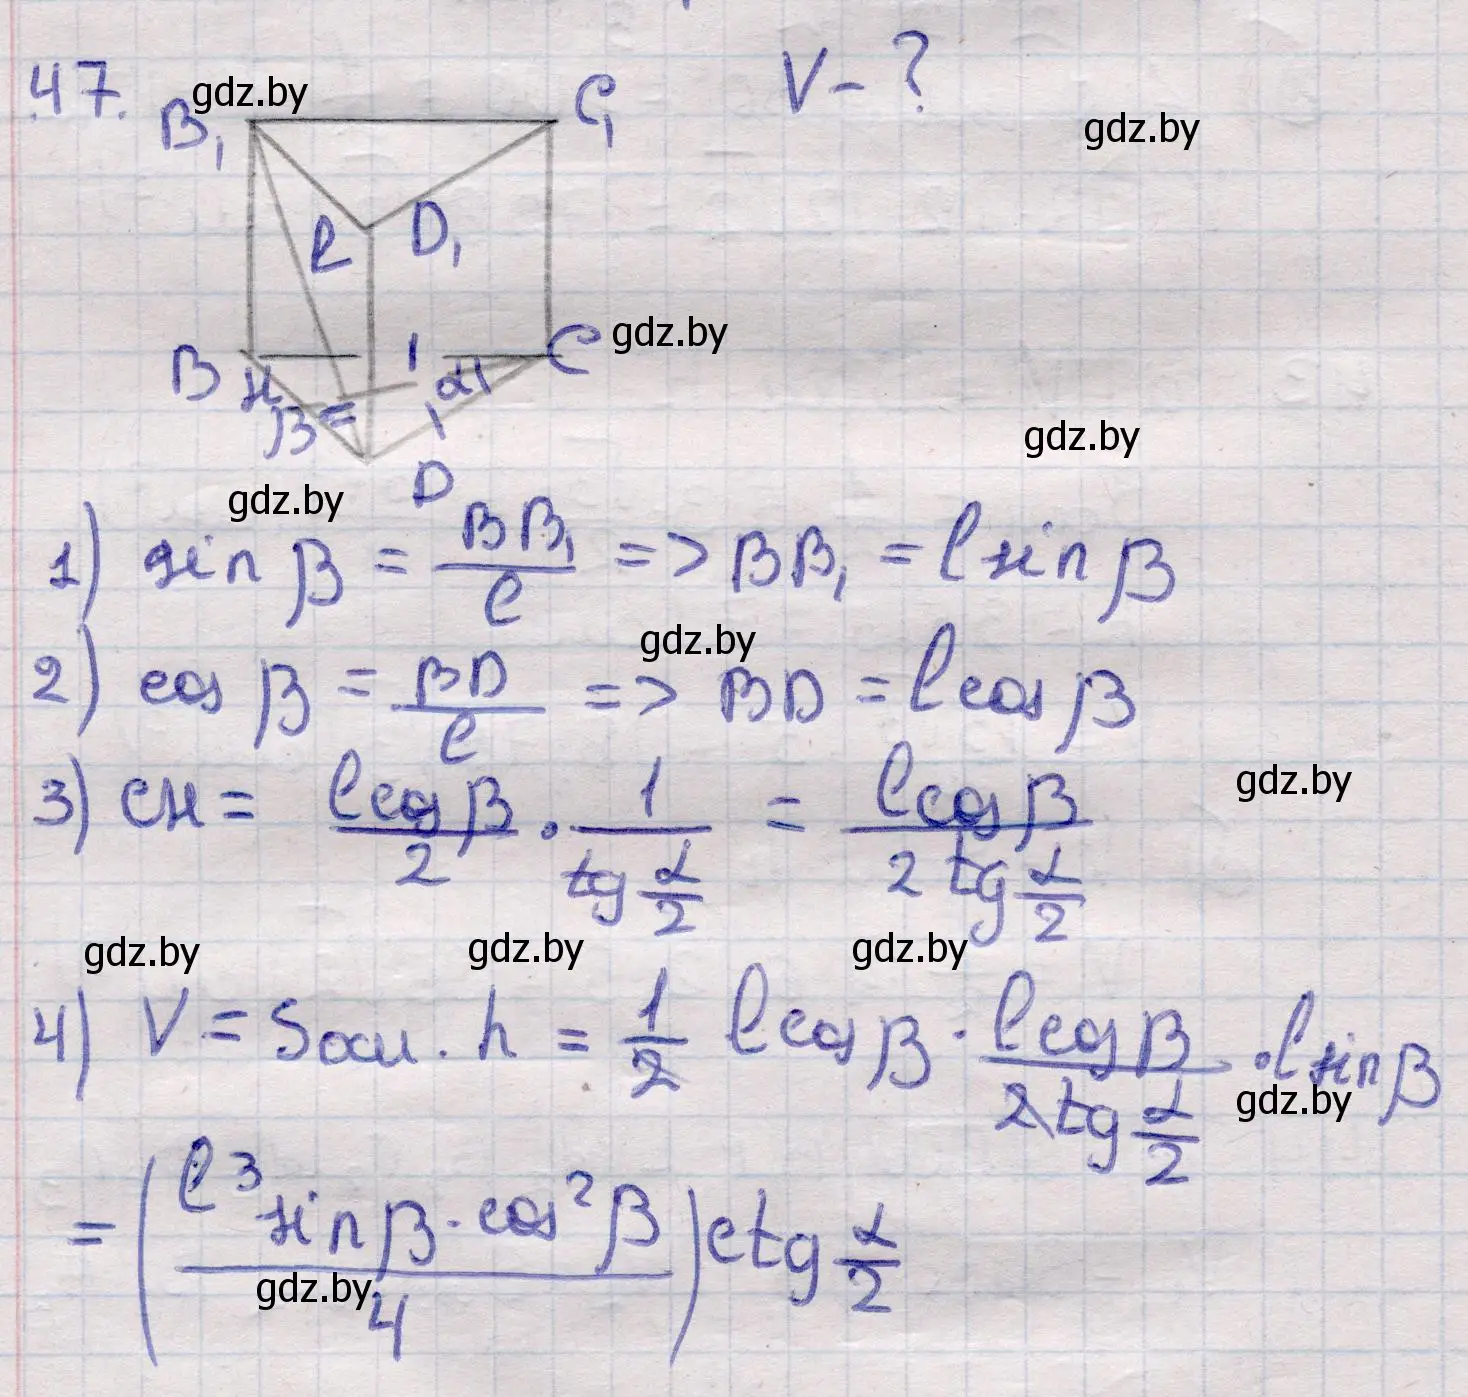 47. gdz.by V - ?
B₁ C₁ gdz.by
ℓ D₁
B C gdz.by
H α
β D gdz.by
gdz.by
1) sin β = BB₁/ℓ => BB₁ = ℓ sin β
gdz.by
2) cos β = BD/ℓ => BD = ℓ cos β
gdz.by
3) CH = ℓ cos β/2 · 1/tg α/2 = ℓ cos β/2 tg α/2
gdz.by gdz.by gdz.by
4) V = Sосн. h = 1/2 ℓ cos β · ℓ cos β/2 tg α/2 · ℓ sin β
gdz.by
= (ℓ³ sin β · cos² β/4) ctg α/2
gdz.by